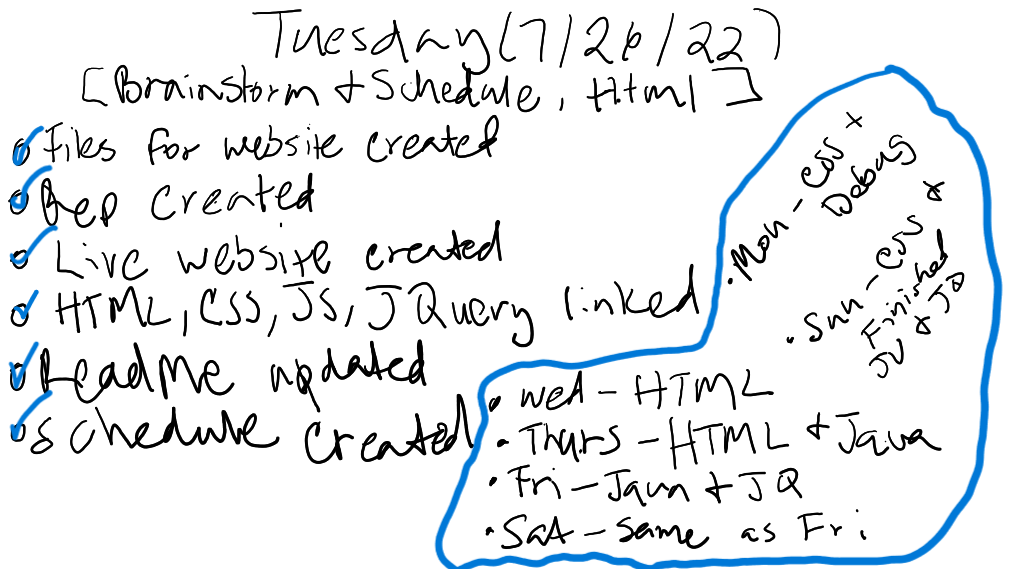 Tuesday (7/26/22)
[Brainstorm + Schedule, Html]
Files for website created
Rep created
Live website created
HTML, CSS, JS, JQuery linked
ReadMe updated
schedule created
• Wed - HTML
• Thurs - HTML + Java
• Fri - Java + JQ
• Sat - same as Fri
• Sun - CSS +
Finished
JV + JQ
• Mon - CSS +
Debug